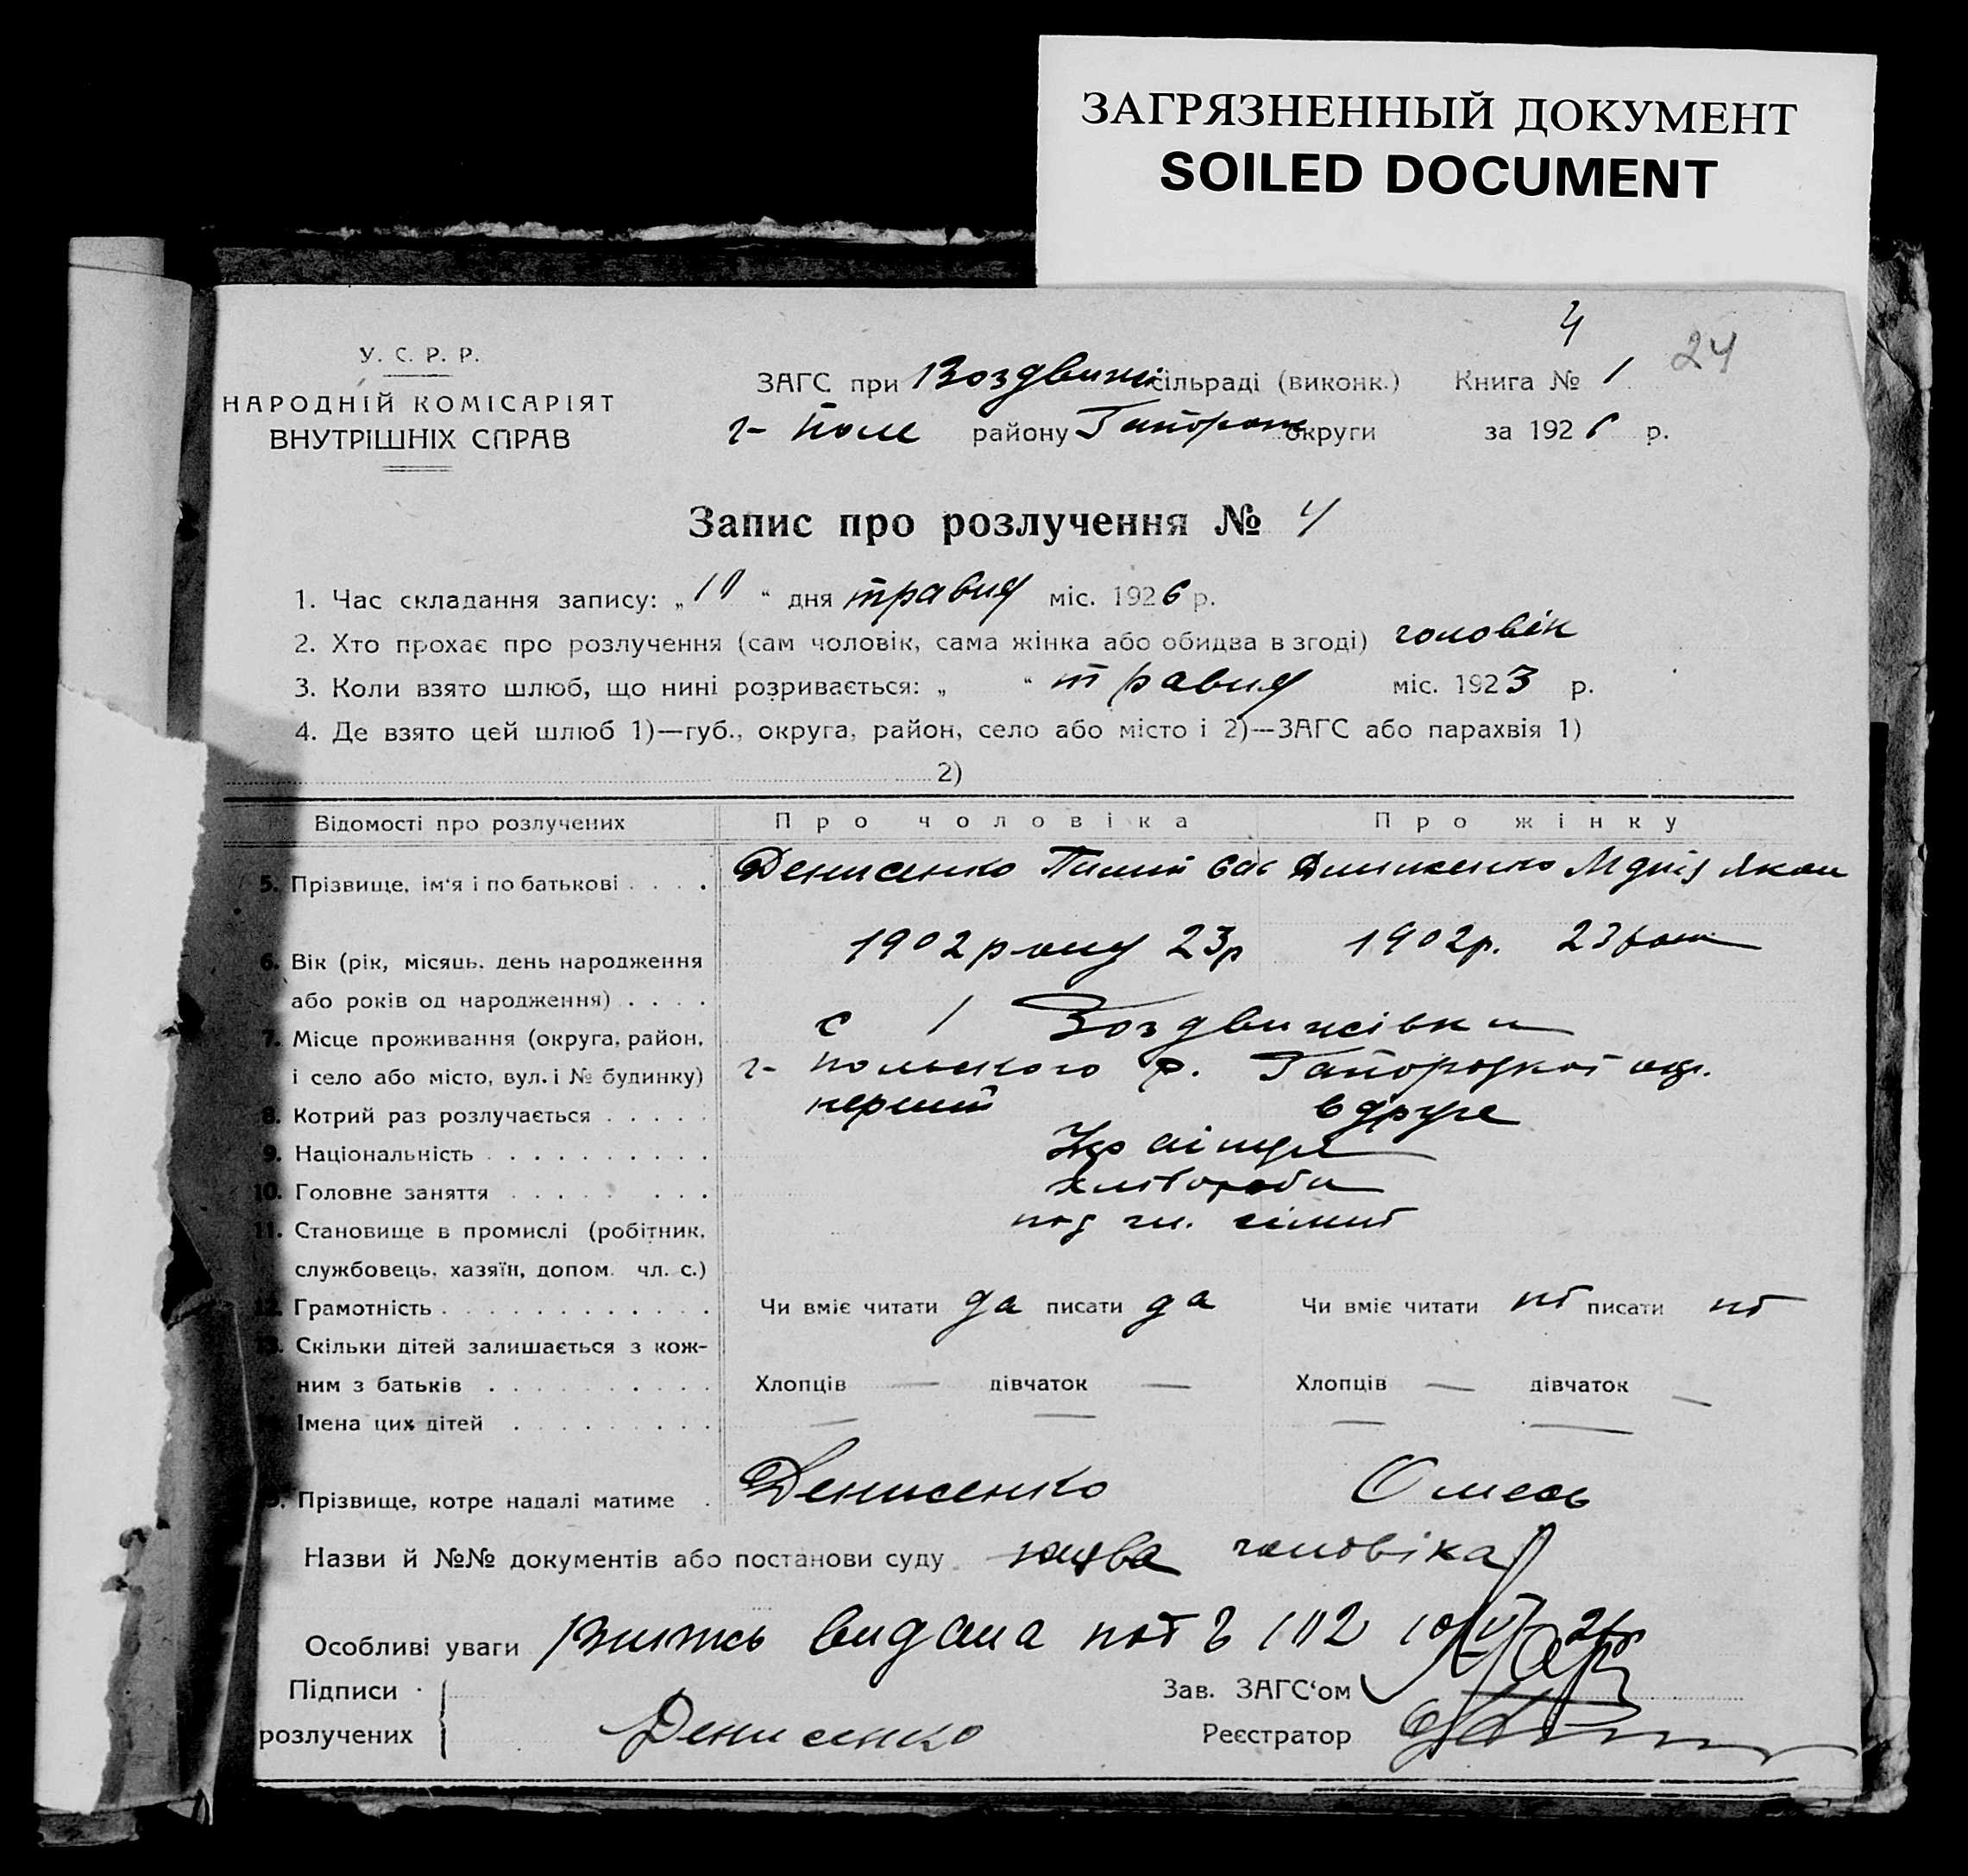 ЗАГРЯЗНЕННЫЙ ДОКУМЕНТ
SOILED DOCUMENT
4
24
У. С. Р. Р.
НАРОДНІЙ КОМІСАРІЯТ
ВНУТРІШНІХ СПРАВ
ЗАГС при Воздвиж сільраді (виконк.) Книга № 1
г- Поле району Запорож округи за 1926 р.
Запис про розлучення № 4
1. Час складання запису: „10“ дня травня міс. 1926 р.
2. Хто прохає про розлучення (сам чоловік, сама жінка або обидва в згоді) чоловік
3. Коли взято шлюб, що нині розривається: „ “ травня міс. 1923 р.
4. Де взято цей шлюб 1)—губ., округа, район, село або місто і 2)—ЗАГС або парахвія 1)
2)
Відомості про розлучених Про чоловіка Про жінку
5. Прізвище, ім‘я і по батькові . . . . Денисенко
6. Вік (рік, місяць, день народження 1902 року 23р 1902р. 23
або років од народження) . . . .
7. Місце проживання (округа, район, с Воздвижівки
і село або місто, вул. і № будинку) г- польского р. окр.
8. Котрий раз розлучається . . . . . перший вдруге
9. Національність . . . . . . . . . . Українця
10. Головне заняття . . . . . . . . хлібороби
11. Становище в промислі (робітник, чл. сімьї
службовець, хазяїн, допом. чл. с.)
12. Грамотність . . . . . . . . . . . . Чи вміє читати да писати да Чи вміє читати ні писати ні
13. Скільки дітей залишається з кож-
ним з батьків . . . . . . . . . . Хлопців — дівчаток — Хлопців — дівчаток —
Імена цих дітей . . . . . . . . . — — — —
Прізвище, котре надалі матиме . Денисенко Омесь
Назви й №№ документів або постанови суду заява чоловіка
Особливі уваги видана 102
Підписи
розлучених Денисенко
Зав. ЗАГС‘ом
Реєстратор